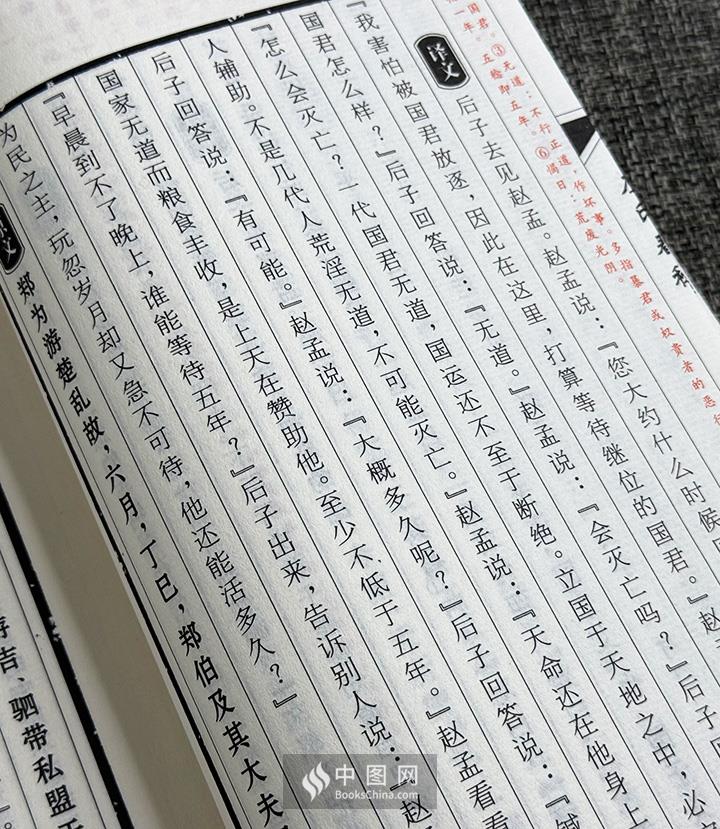 国君。③无道：不行正道，作坏事。多指暴君或权贵者的恶行
一年。五稔即五年。⑥愒日：荒废光阴。
译文
后子去见赵孟。赵孟说：『您大约什么时候
『我害怕被国君放逐，因此在这里，打算等待继位的国君。』赵
国君怎么样？』后子回答说：『无道。』赵孟说：『会灭亡吗？』后子
『怎么会灭亡？一代国君无道，国运还不至于断绝。立国于天地之中，必
人辅助。不是几代人荒淫无道，不可能灭亡。』赵孟说：『天命还在他身上
后子回答说：『有可能。』赵孟说：『大概多久呢？』后子回答说：『
国家无道而粮食丰收，是上天在赞助他。至少不低于五年。』赵孟看看
『早晨到不了晚上，谁能等待五年？』后子出来，告诉别人说：『赵
为民之主，玩忽岁月却又急不可待，他还能活多久？』
文
郑为游楚乱故，六月，丁巳，郑伯及其大夫
吉、驷带私盟于
中图网
BooksChina.com